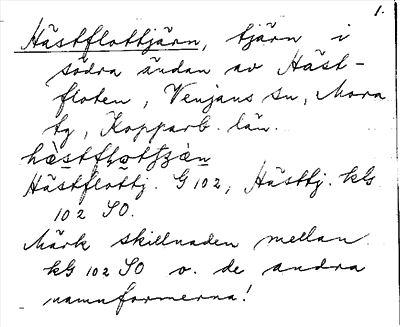 1.
Hästflottjärn, tjärn i
södra ändan av Häst-
floten, Venjans sn, Mora
tg, Kopparb. län.
Hästflottj. G 102, Hästtj. kls
102 SO.
Märk skillnaden mellan
kG 102 SO o. de andra
namnformerna!